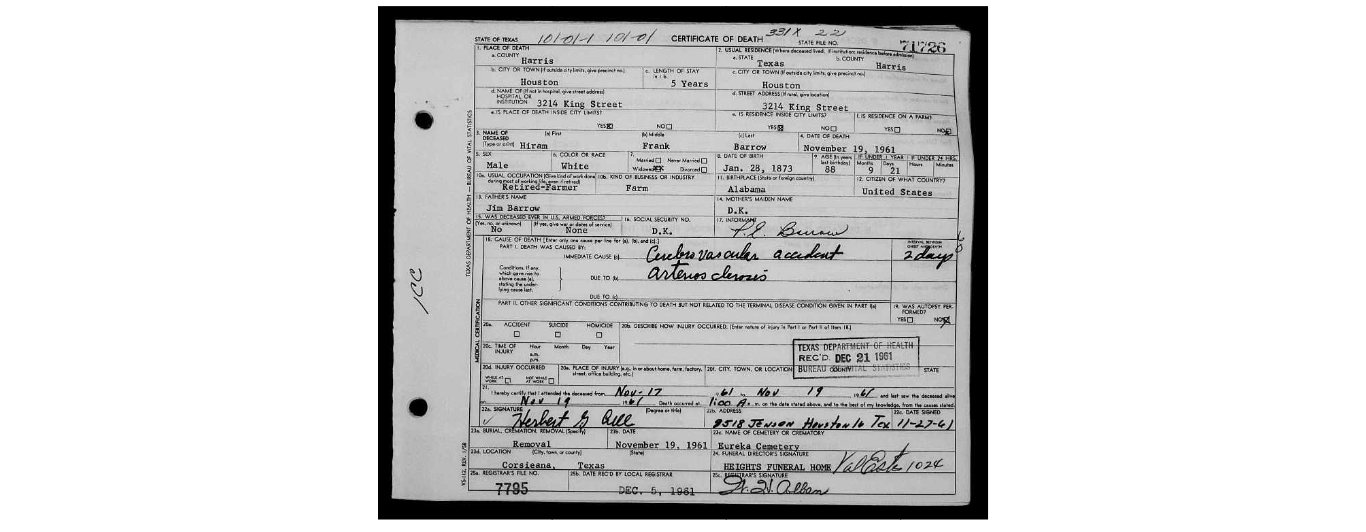 STATE OF TEXAS 101-01-1 101-01 CERTIFICATE OF DEATH 331X 22 STATE FILE NO. 71726
1. PLACE OF DEATH 2. USUAL RESIDENCE (Where deceased lived. If institution: residence before admission)
a. COUNTY Harris a. STATE Texas b. COUNTY Harris
b. CITY OR TOWN (If outside city limits, give precinct no.) c. LENGTH OF STAY c. CITY OR TOWN (If outside city limits, give precinct no.)
Houston 5 Years Houston
d. NAME OF (If not in hospital, give street address) HOSPITAL OR INSTITUTION d. STREET ADDRESS (If rural, give location)
3214 King Street 3214 King Street
e. IS PLACE OF DEATH INSIDE CITY LIMITS? e. IS RESIDENCE INSIDE CITY LIMITS? f. IS RESIDENCE ON A FARM?
YES NO YES NO YES NO
3. NAME OF DECEASED (Type or print) (a) First (b) Middle (c) Last 4. DATE OF DEATH
Hiram Frank Barrow November 19, 1961
5. SEX 6. COLOR OR RACE 7. Married Never Married Widowed Divorced 8. DATE OF BIRTH 9. AGE (In years last birthday) IF UNDER 1 YEAR IF UNDER 24 HRS.
Months Days Hours Minutes
Male White Jan. 28, 1873 88 9 21
10a. USUAL OCCUPATION (Give kind of work done during most of working life, even if retired) 10b. KIND OF BUSINESS OR INDUSTRY 11. BIRTHPLACE (State or foreign country) 12. CITIZEN OF WHAT COUNTRY?
Retired-Farmer Farm Alabama United States
13. FATHER'S NAME 14. MOTHER'S MAIDEN NAME
Jim Barrow D.K.
15. WAS DECEASED EVER IN U.S. ARMED FORCES? 16. SOCIAL SECURITY NO. 17. INFORMANT
(Yes, no, or unknown) (If yes, give war or dates of service)
No None D.K. Barrow
18. CAUSE OF DEATH [Enter only one cause per line for (a), (b), and (c).] INTERVAL BETWEEN ONSET AND DEATH
PART I. DEATH WAS CAUSED BY:
IMMEDIATE CAUSE (a) Cerebro vascular accident 2 days
Conditions, if any, which gave rise to above cause (a), stating the underlying cause last. DUE TO (b) arterios clerosis
DUE TO (c)
PART II. OTHER SIGNIFICANT CONDITIONS CONTRIBUTING TO DEATH BUT NOT RELATED TO THE TERMINAL DISEASE CONDITION GIVEN IN PART I(a) 19. WAS AUTOPSY PERFORMED?
YES NO
20a. ACCIDENT SUICIDE HOMICIDE 20b. DESCRIBE HOW INJURY OCCURRED. (Enter nature of injury in Part I or Part II of item 18.)
20c. TIME OF INJURY Hour Month Day Year
a.m.
p.m.
TEXAS DEPARTMENT OF HEALTH
REC'D. DEC 21 1961
BUREAU OF VITAL STATISTICS
20d. INJURY OCCURRED 20e. PLACE OF INJURY (e.g., in or about home, farm, factory, street, office building, etc.) 20f. CITY, TOWN, OR LOCATION COUNTY STATE
WHILE AT WORK NOT WHILE AT WORK
21. I hereby certify that I attended the deceased from Nov-17 1961 to Nov 19 1961 and last saw the deceased alive
on Nov 19 1961 Death occurred at 1:00 A. m. on the date stated above, and to the best of my knowledge, from the causes stated.
22a. SIGNATURE (Degree or title) 22b. ADDRESS 22c. DATE SIGNED
Herbert G 9518 Jenson Houston 16 Tex 11-27-61
23a. BURIAL, CREMATION, REMOVAL (Specify) 23b. DATE 23c. NAME OF CEMETERY OR CREMATORY
Removal November 19, 1961 Eureka Cemetery
23d. LOCATION (City, town, or county) (State) 24. FUNERAL DIRECTOR'S SIGNATURE
Corsicana, Texas HEIGHTS FUNERAL HOME 1024
25a. REGISTRAR'S FILE NO. 25b. DATE REC'D BY LOCAL REGISTRAR 25c. REGISTRAR'S SIGNATURE
7795 DEC. 5, 1961
TEXAS DEPARTMENT OF HEALTH — BUREAU OF VITAL STATISTICS
MEDICAL CERTIFICATION
1CC